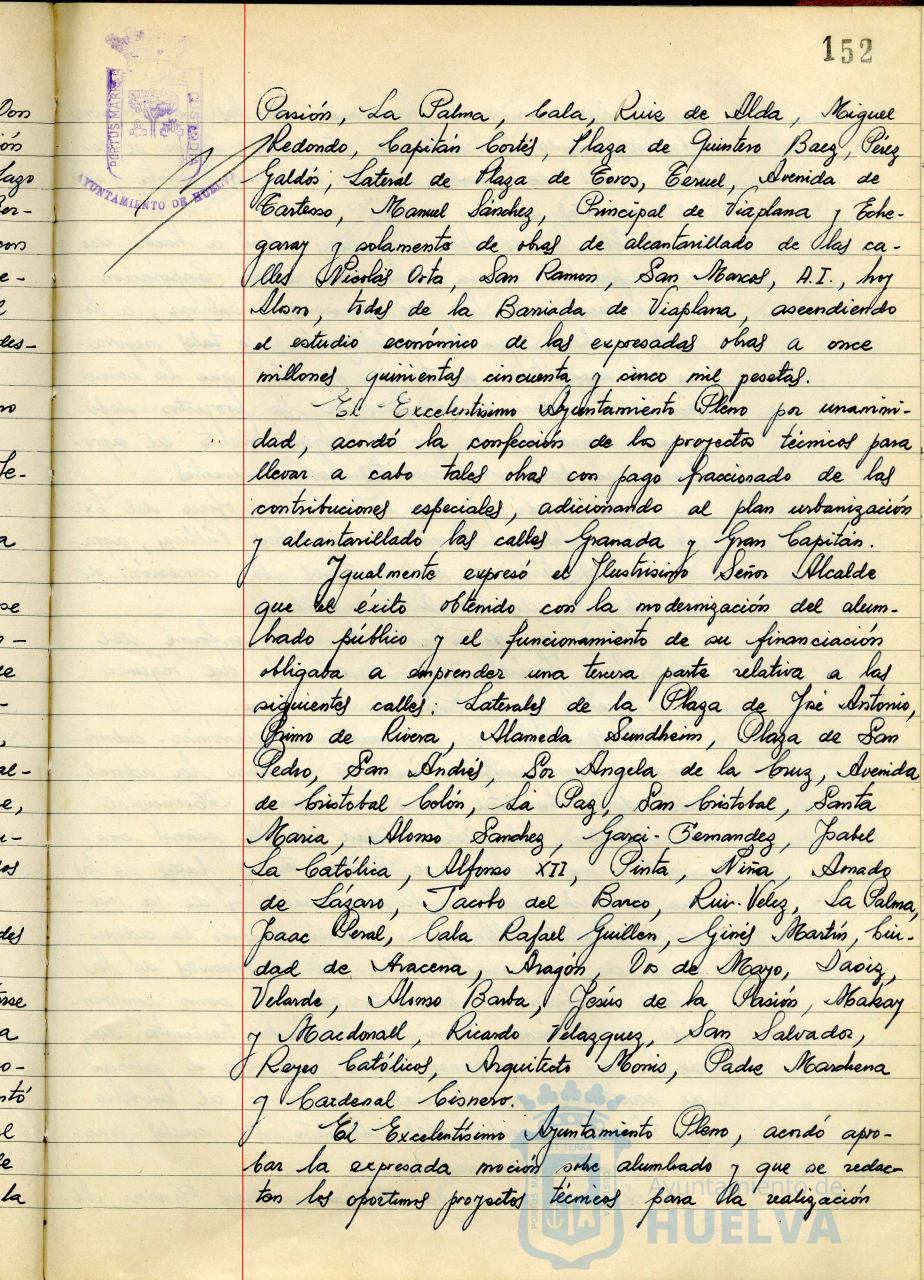 152
PORTUS MARIS
AYUNTAMIENTO DE HUELVA
Pasión, La Palma, Cala, Ruiz de Alda, Miguel
Redondo, Capitán Cortés, Plaza de Quintero Baez, Pérez
Galdós, Lateral de Plaza de Toros, Teruel, Avenida de
Tartesso, Manuel Sánchez, Principal de Viaplana y Eche-
garay y solamento de obras de alcantarillado de las ca-
lles Nicolás Orta, San Ramon, San Marcos, A.I., hoy
Alosno, todas de la Barriada de Viaplana, ascendiendo
el estudio económico de las expresadas obras a once
millones quinientas cincuenta y cinco mil pesetas.
El Excelentísimo Ayuntamiento Pleno por unanimi-
dad, acordó la confección de los proyectos técnicos para
llevar a cabo tales obras con pago fraccionado de las
contribuciones especiales, adicionando al plan urbanización
y alcantarillado las calles Granada y Gran Capitán.
Igualmente expresó el Ilustrísimo Señor Alcalde
que el éxito obtenido con la modernización del alum-
brado público y el funcionamiento de su financiación
obligaba a emprender una tercera parte relativa a las
siguientes calles: Laterales de la Plaza de José Antonio,
Primo de Rivera, Alameda Sundheim, Plaza de San
Pedro, San Andrés, Sor Angela de la Cruz, Avenida
de Cristobal Colón, La Paz, San Cristobal, Santa
Maria, Alonso Sanchez, Garci-Fernandez, Isabel
La Católica, Alfonso XII, Pinta, Niña, Amado
de Lázaro, Jacobo del Barco, Rui-Velez, La Palma,
Isaac Peral, Cala Rafael Guillén, Ginés Martín, Ciu-
dad de Aracena, Aragón, Dos de Mayo, Daoiz,
Velarde, Alonso Barba, Jesús de la Pasión, Makay
y Macdonall, Ricardo Velazquez, San Salvador,
Reyes Católicos, Arquitecto Monis, Padre Marchena
y Cardenal Cisnero.
El Excelentísimo Ayuntamiento Pleno, acordó apro-
bar la expresada moción sobre alumbrado y que se redac-
ten los oportunos proyectos técnicos para la realización
Ayuntamiento de
HUELVA